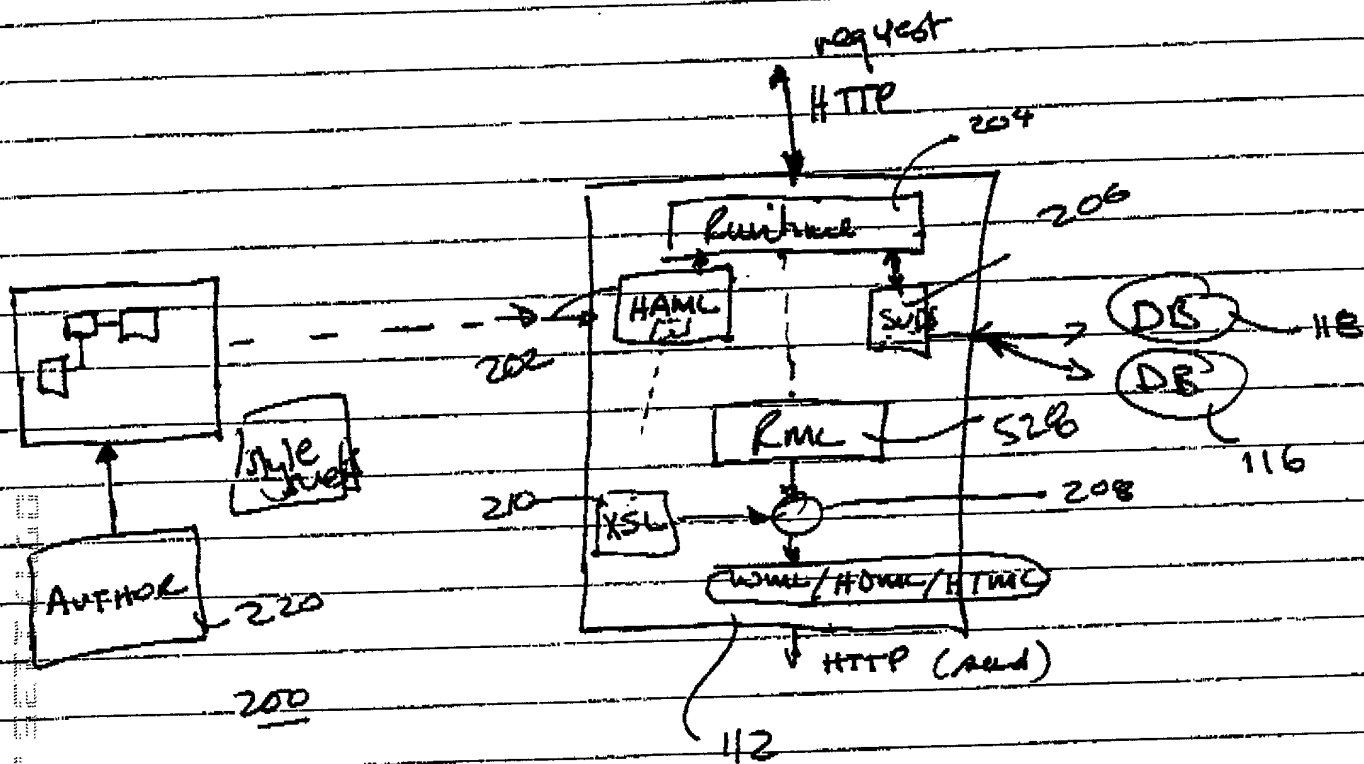 request
HTTP
204
Runtime
206
HAML
SVDS
DB
118
202
DB
RML
528
116
Style
Sheet
210
XSL
208
WML/HDML/HTML
AUTHOR
220
HTTP (send)
200
112